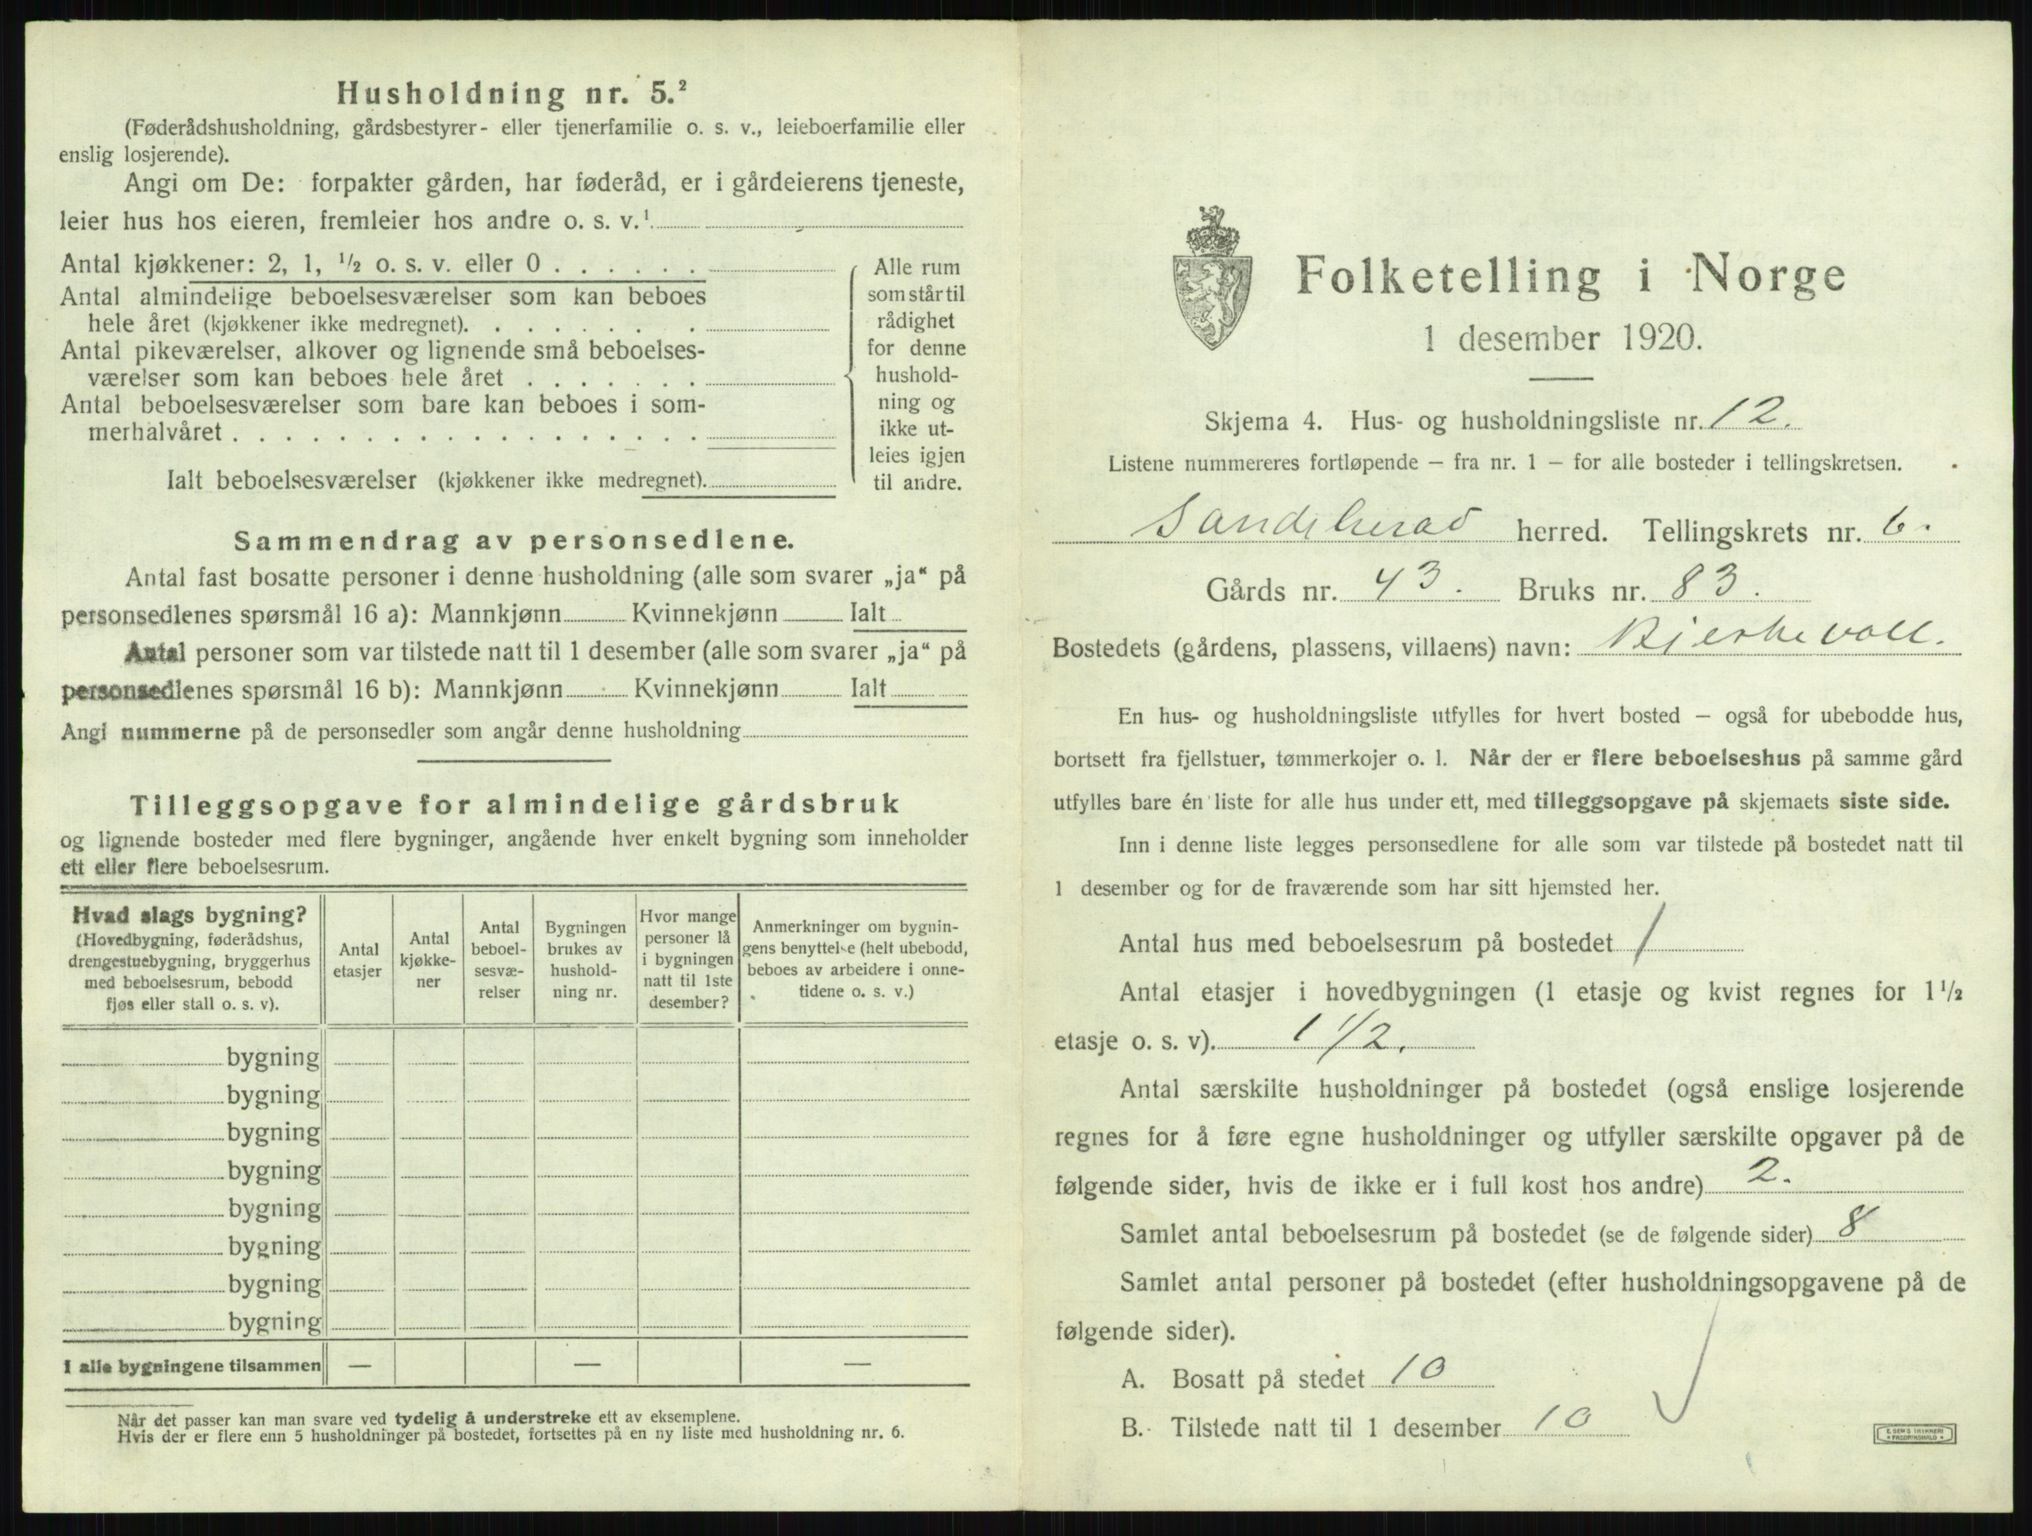 Husholdning nr. 5.²
(Føderådshusholdning, gårdsbestyrer- eller tjenerfamilie o. s. v., leieboerfamilie eller
enslig losjerende).
Angi om De: forpakter gården, har føderåd, er i gårdeierens tjeneste,
leier hus hos eieren, fremleier hos andre o. s. v.¹
Antal kjøkkener: 2, 1, ½ o. s. v. eller 0 . . . . . .
Antal almindelige beboelsesværelser som kan beboes
hele året (kjøkkener ikke medregnet). . . . . . . . .
Antal pikeværelser, alkover og lignende små beboelses-
værelser som kan beboes hele året . . . . . . .
Antal beboelsesværelser som bare kan beboes i som-
merhalvåret . . . . . . . . . . . . . . . . . .
Ialt beboelsesværelser (kjøkkener ikke medregnet).
Alle rum
som står til
rådighet
for denne
hushold-
ning og
ikke ut-
leies igjen
til andre.
Sammendrag av personsedlene.
Antal fast bosatte personer i denne husholdning (alle som svarer „ja“ på
personsedlenes spørsmål 16 a): Mannkjønn Kvinnekjønn Ialt
Antal personer som var tilstede natt til 1 desember (alle som svarer „ja“ på
personsedlenes spørsmål 16 b): Mannkjønn Kvinnekjønn Ialt
Angi nummerne på de personsedler som angår denne husholdning
Tilleggsopgave for almindelige gårdsbruk
og lignende bosteder med flere bygninger, angående hver enkelt bygning som inneholder
ett eller flere beboelsesrum.
Hvad slags bygning?
(Hovedbygning, føderådshus,
drengestuebygning, bryggerhus
med beboelsesrum, bebodd
fjøs eller stall o. s. v).
Antal
etasjer
Antal
kjøkke-
ner
Antal
beboel-
sesvæ-
relser
Bygningen
brukes av
hushold-
ning nr.
Hvor mange
personer lå
i bygningen
natt til 1ste
desember?
Anmerkninger om bygnin-
gens benyttelse (helt ubebodd,
beboes av arbeidere i onne-
tidene o. s. v.)
bygning
bygning
bygning
bygning
bygning
bygning
bygning
bygning
I alle bygningene tilsammen — — —
Når det passer kan man svare ved tydelig å understreke ett av eksemplene.
Hvis der er flere enn 5 husholdninger på bostedet, fortsettes på en ny liste med husholdning nr. 6.
Folketelling i Norge
1 desember 1920.
Skjema 4. Hus- og husholdningsliste nr. 12.
Listene nummereres fortløpende – fra nr. 1 – for alle bosteder i tellingskretsen.
Sandeherad herred. Tellingskrets nr. 6.
Gårds nr. 43. Bruks nr. 83.
Bostedets (gårdens, plassens, villaens) navn: Bjerkevoll.
En hus- og husholdningsliste utfylles for hvert bosted – også for ubebodde hus,
bortsett fra fjellstuer, tømmerkojer o. l. Når der er flere beboelseshus på samme gård
utfylles bare én liste for alle hus under ett, med tilleggsopgave på skjemaets siste side.
Inn i denne liste legges personsedlene for alle som var tilstede på bostedet natt til
1 desember og for de fraværende som har sitt hjemsted her.
Antal hus med beboelsesrum på bostedet 1
Antal etasjer i hovedbygningen (1 etasje og kvist regnes for 1½
etasje o. s. v). 1 1/2.
Antal særskilte husholdninger på bostedet (også enslige losjerende
regnes for å føre egne husholdninger og utfyller særskilte opgaver på de
følgende sider, hvis de ikke er i full kost hos andre) 2.
Samlet antal beboelsesrum på bostedet (se de følgende sider) 8
Samlet antal personer på bostedet (efter husholdningsopgavene på de
følgende sider).
A. Bosatt på stedet 10
B. Tilstede natt til 1 desember 10
E. SEM'S TRYKKERI
FREDRIKSHALD